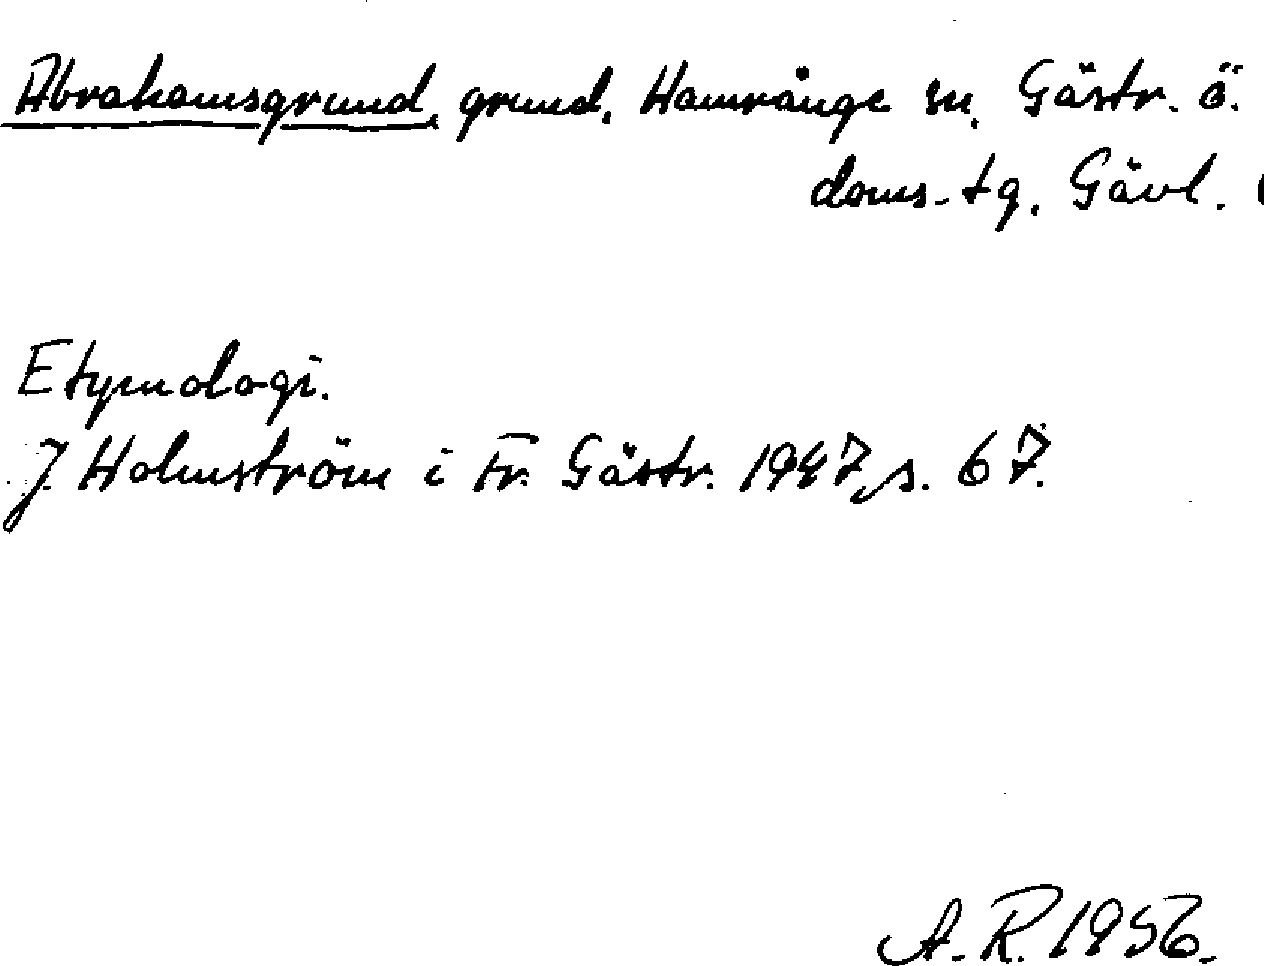 Abrahamsgrund, grund. Hamrånge sn. Gästr. ö.
doms. tg. Gävl.
Etymologi.
J. Holmström i Fr. Gästr. 1947, s. 67.
A. R. 1956.